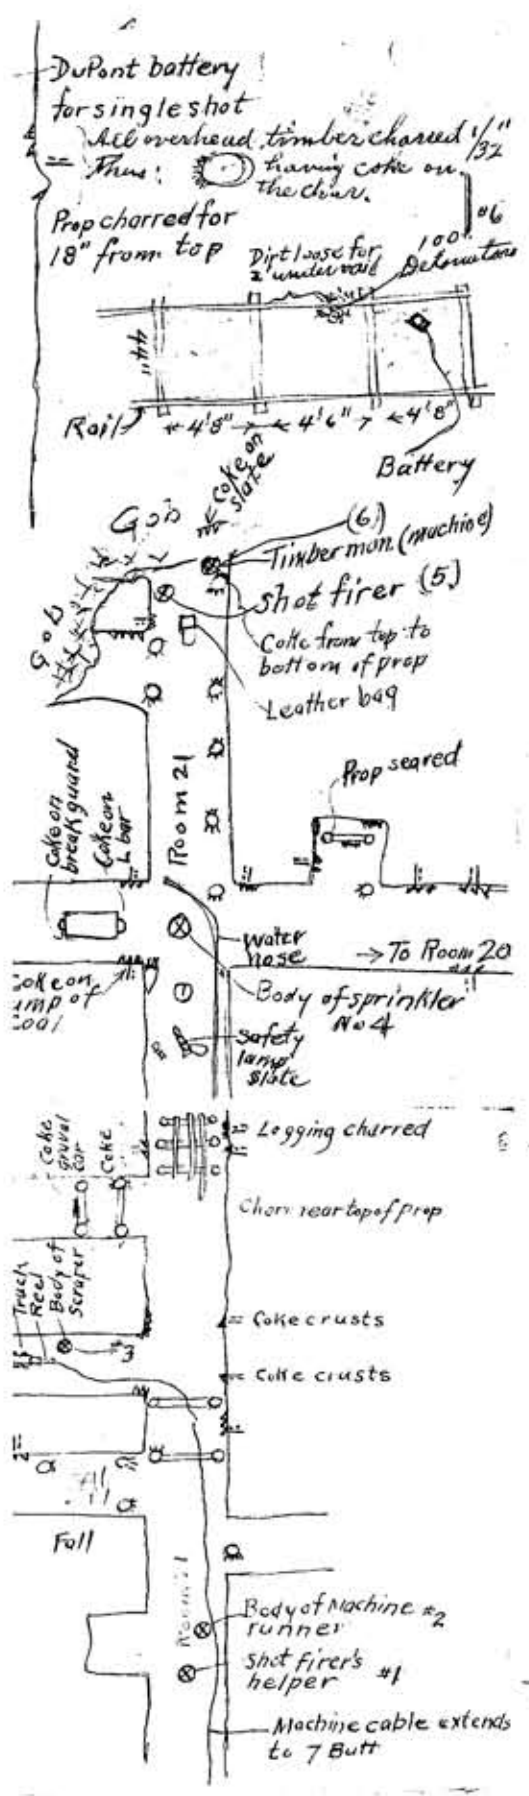 DuPont battery
for single shot
All overhead timber charred 1/32"
Thus: having coke on
the char.
Prop charred for
18" from top
#6
100"
Dirt loose for
2' under rail
Detonators
44"
Rail
4'8"
4'6"
4'8"
Battery
Coke on
slate
Gob
(6)
Timberman (machine)
Shot firer (5)
Gob
Coke from top to
bottom of prop
Leather bag
Room 21
Prop seared
Coke on
break guard
Coke on
L bar
water
hose
→ To Room 20
Coke on
lump of
coal
Body of sprinkler
No 4
Safety
lamp
Slate
Coke
gravel
car
Coke
Logging charred
Char near top of prop
Truck
Reel
Body of
Scraper
3
Coke crusts
Coke crusts
Fall
Room 21
Body of Machine #2
runner
Shot firer's
helper #1
Machine cable extends
to 7 Butt